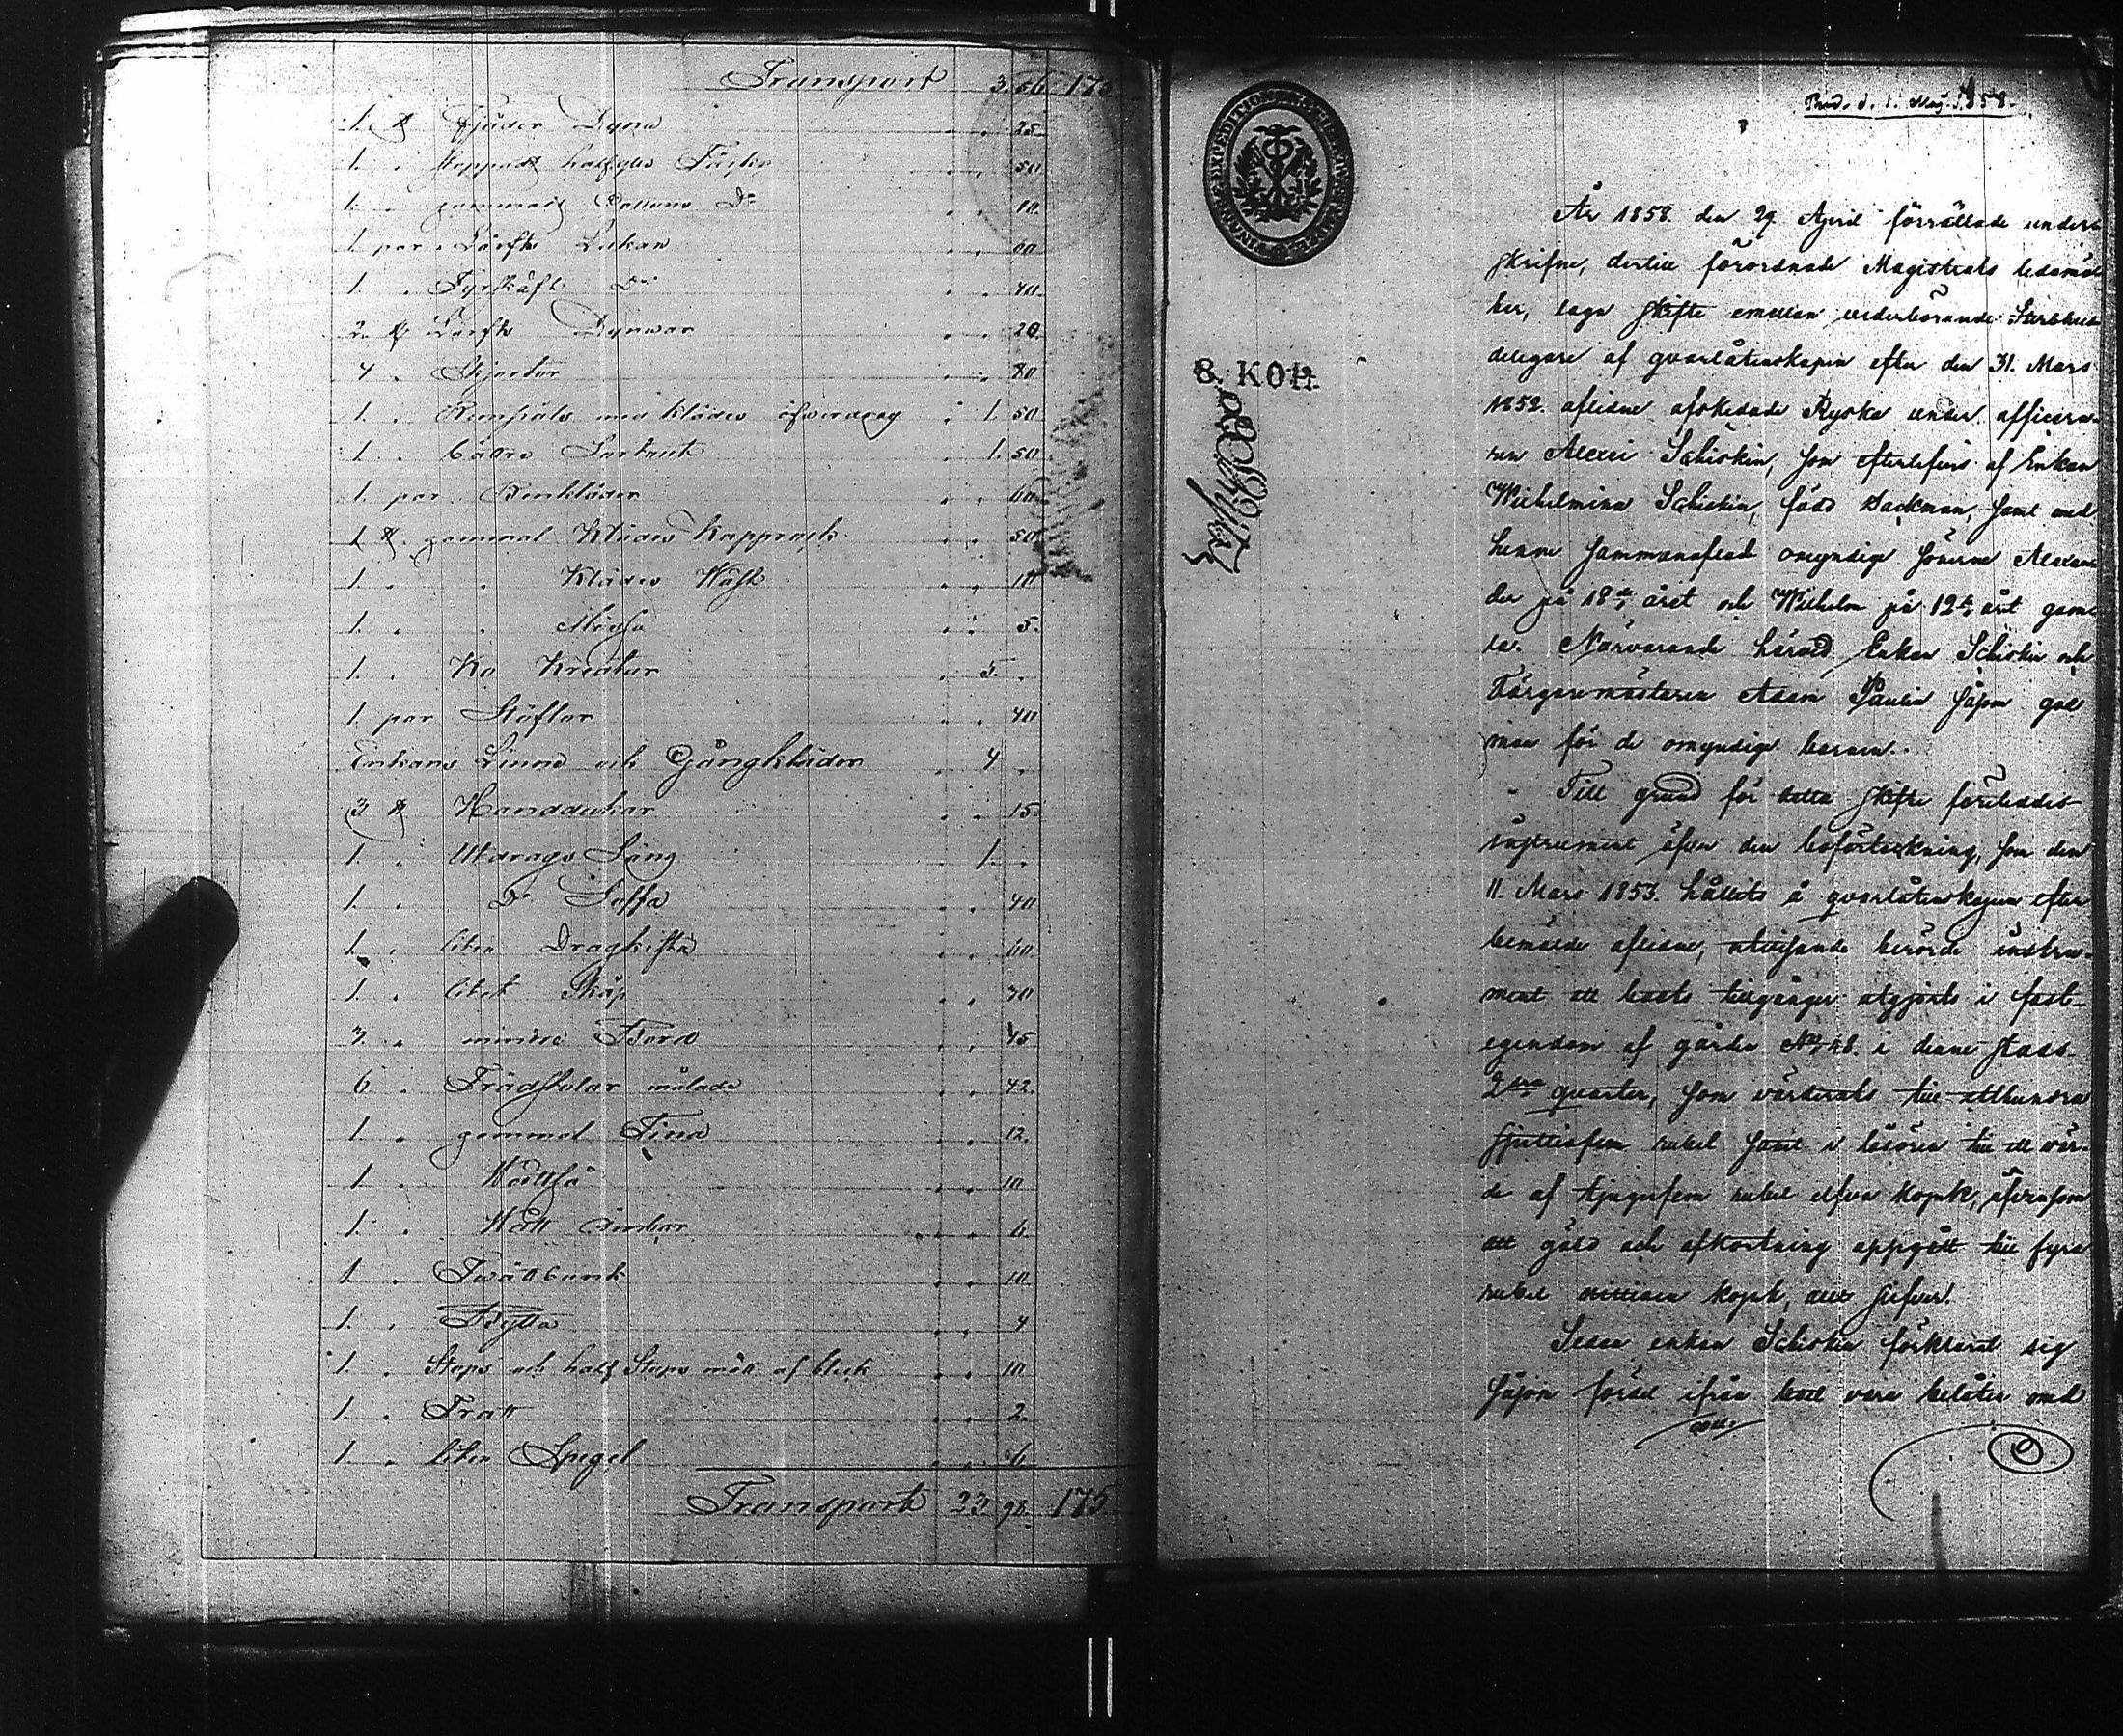 Transport 3. 56 175
1. st Fjäder Dyna „ „ 25.
1. „ stoppadt halfylle Täcke „ „ 50
1. „ gammalt Kattuns Do „ „ 10.
1 par Lärfts Lakan „ „ 60
1. „ Fyrskäft Do „ „ 40.
2. st Lärfts Dynwar „ „ 20.
4 „ Skjortor „ „ 80
1. „ Rempäls med klädes öfverdrag „ 1. 50
1. „ blåbrs Surtout „ 1. 50
1. par Benkläder „ „ 60
1 st. gammal Klädes Kapprock „ „ 50
1. „ „ Klädes Wäst „ „ 10
1. „ „ Mössa „ „ 5.
1. „ Ko Kreatur „ 5. „
1. par Stöflar „ „ 40
Enkans Linne och Gångkläder „ 4 „
3 st Handdukar „ „ 15
1. „ Utdrags Säng 1. „
1. „ Do Soffa „ „ 40
1. „ liten Dragkista „ „ 60
1. „ litet Skåp „ „ 40
3. „ mindre Bord „ „ 45
6 „ Trädstolar målade „ „ 42.
1. „ gammal Tina „ „ 12.
1. „ Wattså „ „ 10
1. „ Watt ämbar „ „ 6.
1. „ Twättbunk „ „ 10
1. „ Bytta „ „ 4
1. „ Stops och half Stops mått af bleck „ „ 10
1. „ Tratt „ „ 2.
1 „ liten Spegel „ „ 6
Transport 23. 98. 175.
Prod. d. 1. Maj 1858.
8. КОП.
År 1858 den 29 April förrättade under-
skrifne, dertill förordnade Magistrats ledamö-
ter, laga skifte emellan vederbörande Sterbhus-
delegare af qvarlåtenskapen efter den 31. Mars
1852. aflidne afskedade Ryska under officera-
ren Alexei Schiskin, som efterlefves af Enkan
Wilhelmina Schiskin, född Backman, samt med
henne sammanaflade omyndige sönerne Alexan-
der på 18de året och Wilhelm på 12te året gam-
la. Närvarande härvid Enkan Schiskin och
Färgaremästaren Adam Paulin såsom god
man för de omyndige barnen.
Till grund för detta skifte föreladdes
instrument öfver den boförteckning, som den
11. Mars 1853. hållits å qvarlåtenskapen efter
bemälde aflidne, utvisande berörde instru-
ment att boets tillgångar utgjorts i fast-
egendom af gården No 48. i denne stads
2dra quarter, som värderats till etthundra
sjuttiofem rubel samt i lösören till ett vär-
de af tjugufem rubel elfva kopek, äfvensom
att gäld och afkortning uppgått till fyra
rubel nittioen kopek, allt silfver.
Sedan enkan Schiskin förklarat sig
såsom förael ifrån boet vara belåten med